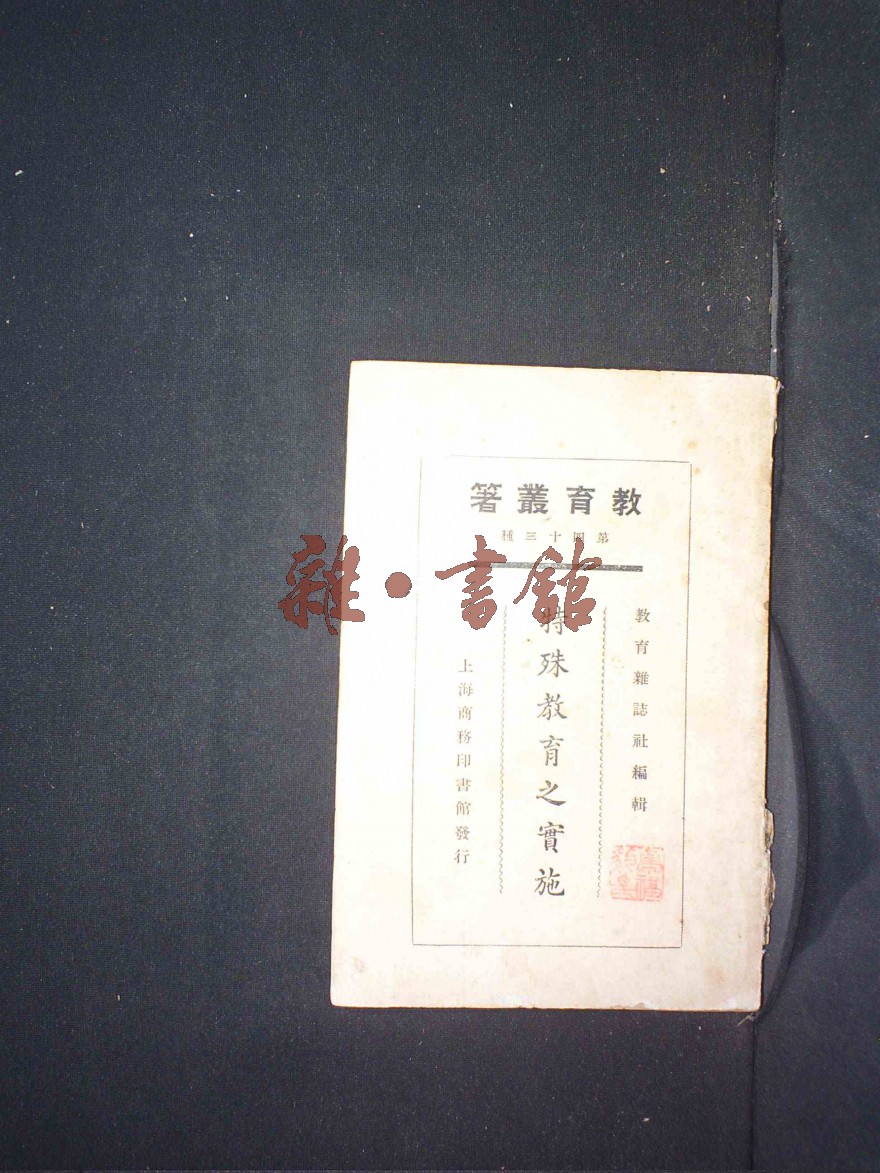 教育叢著
第四十三種
教育雜誌社編輯
特殊教育之實施
上海商務印書館發行
雜·書館